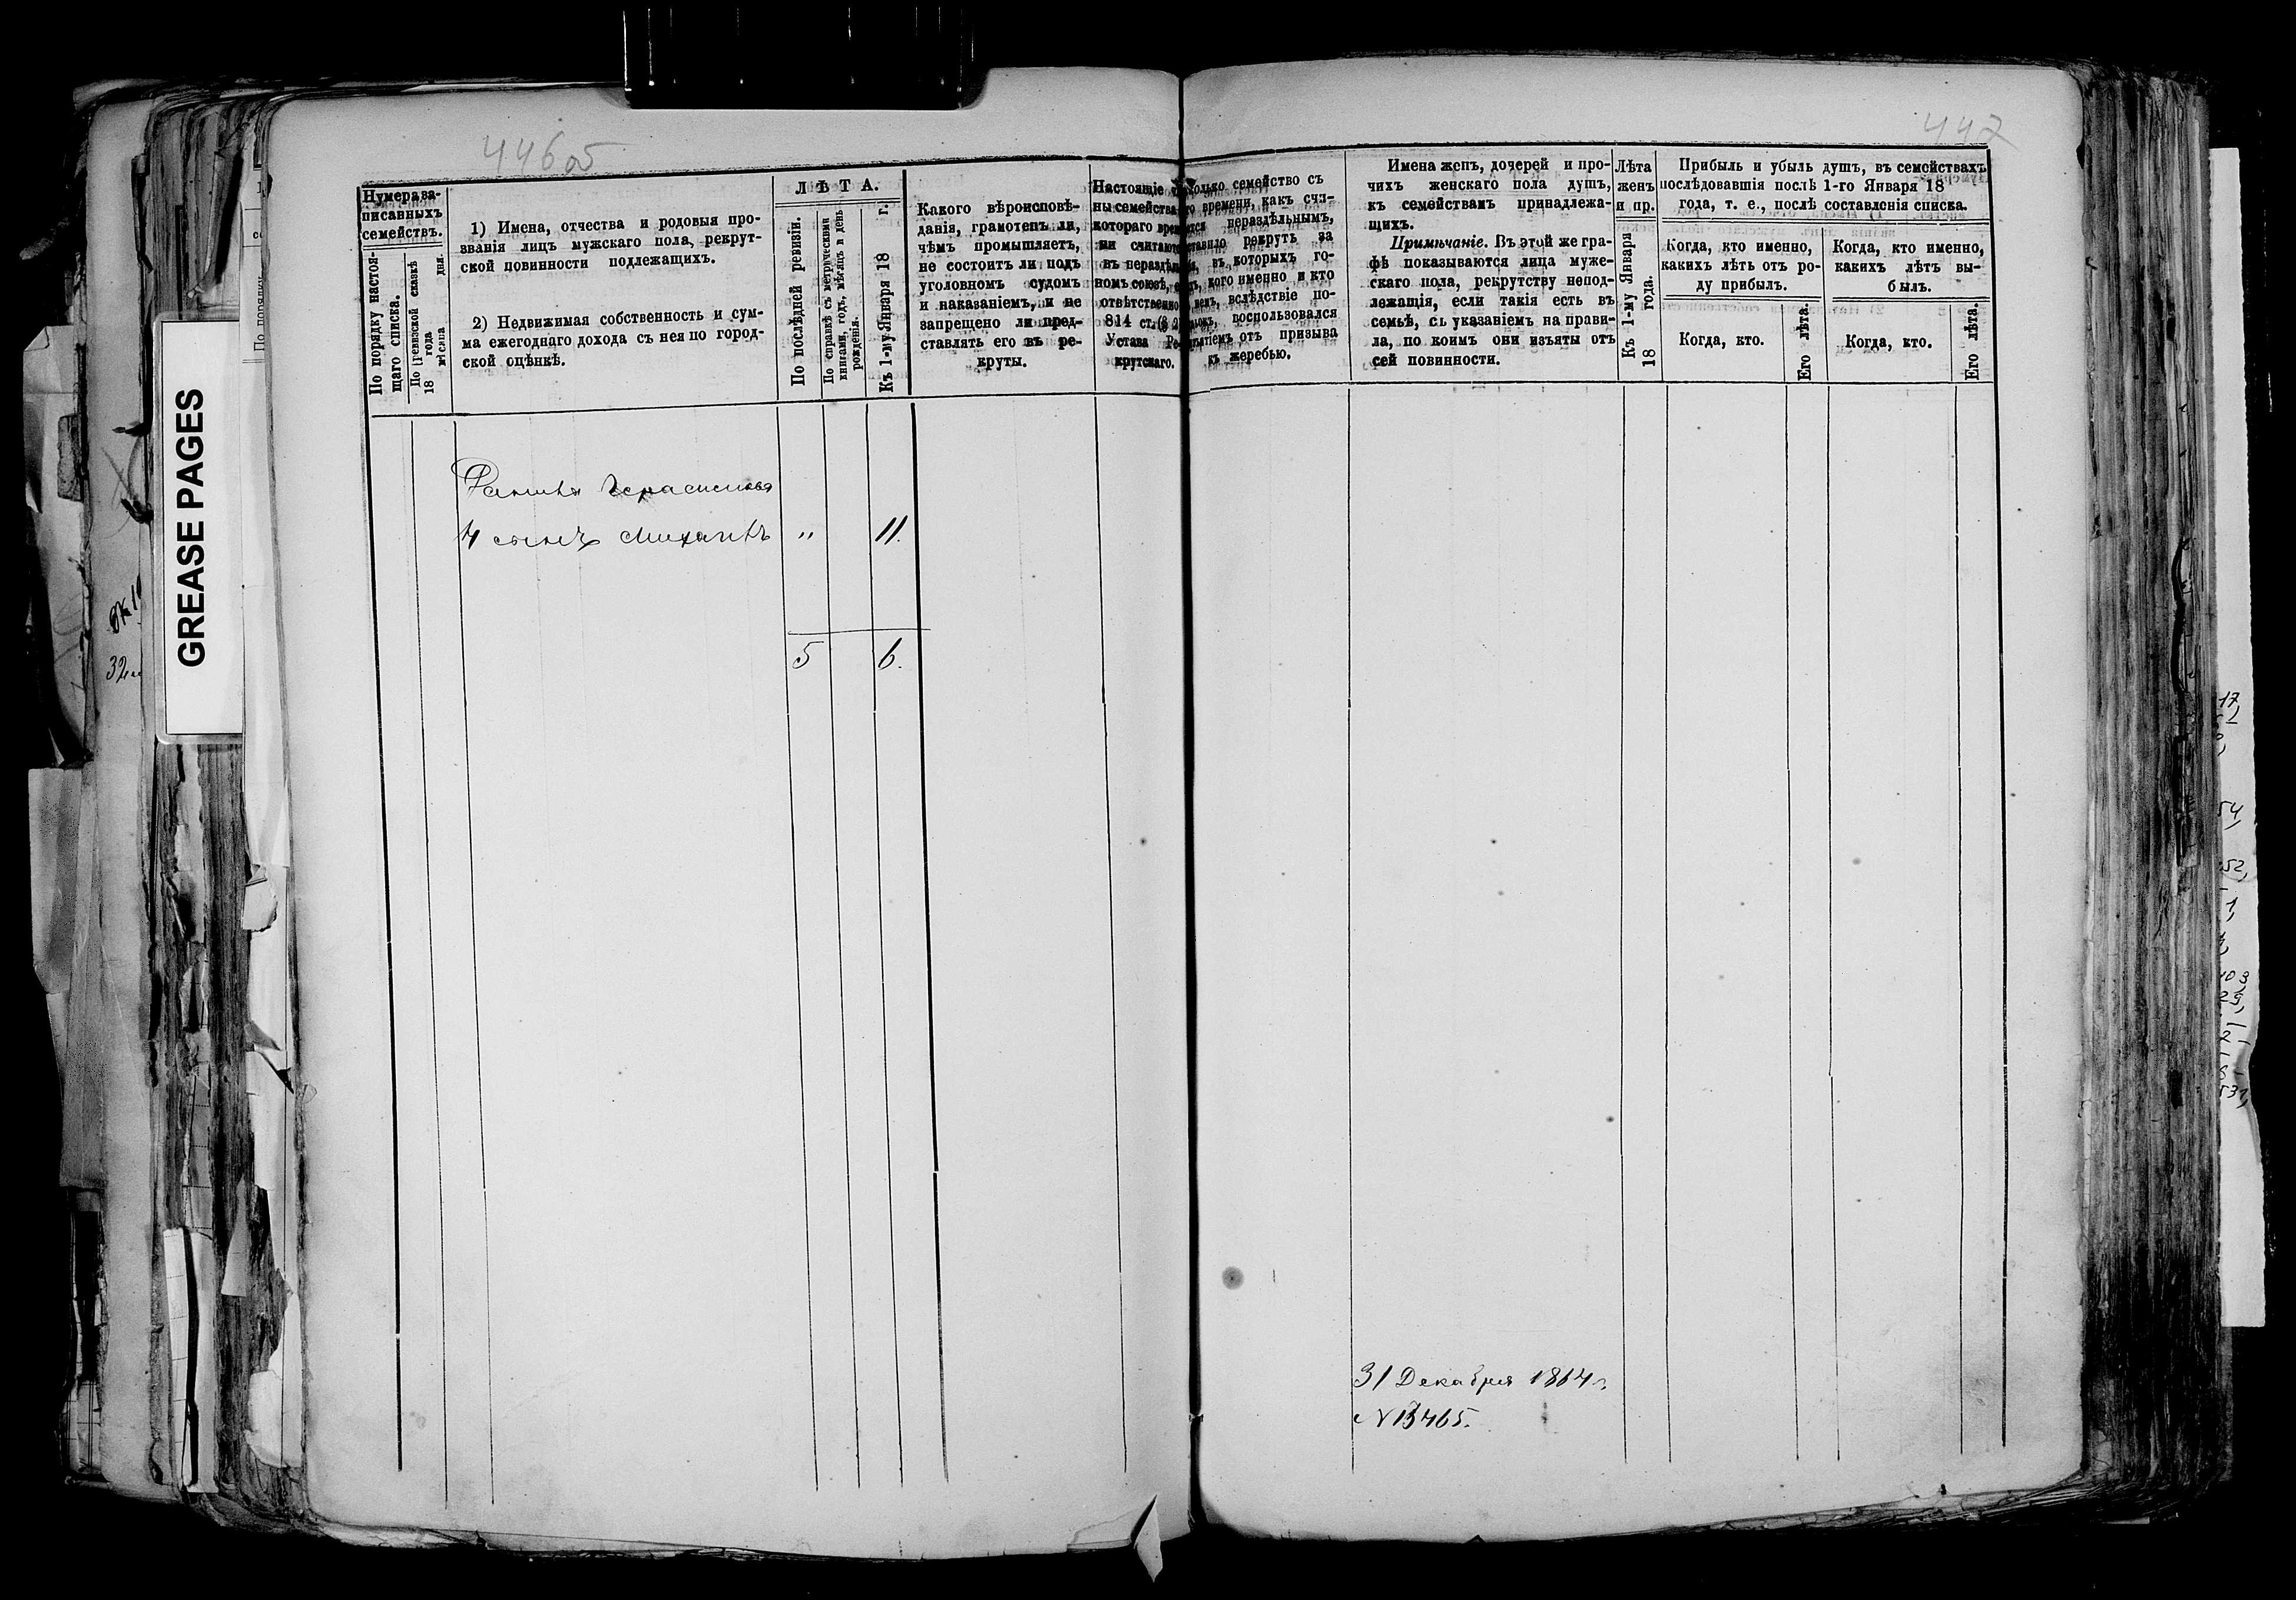 446об
447
GREASE PAGES
Нумера за-
писанныхъ
семействъ.
По порядку настоя-
щаго списка.
По ревизской сказкѣ
18 года
мѣсяца дня.
1) Имена, отчества и родовыя про-
званія лицъ мужскаго пола, рекрут-
ской повинности подлежащихъ.
2) Недвижимая собственность и сум-
ма ежегоднаго дохода съ нея по город-
ской оцѣнкѣ.
ЛѢТА.
По послѣдней ревизіи.
По справкѣ съ метрическими
книгами, годъ, мѣсяцъ и день
рожденія.
Къ 1-му Января 18 г.
Какого вѣроисповѣ-
данія, грамотенъ ли,
чѣмъ промышляетъ,
не состоитъ ли подъ
уголовномъ судомъ
и наказаніемъ, и не
запрещено ли пред-
ставлять его въ ре-
круты.
Настоящіе
ны семейства
котораго
ми считаю
въ нераздѣль
номъ союзѣ,
отвѣтственно
814 ст.
Устава Ре-
крутскаго.
семейство съ
времени, какъ счи-
нераздѣльнымъ,
рекрутъ за
въ которыхъ го-
кого именно и кто
вслѣдствіе по-
воспользовался
отъ призыва
къ жеребью.
Имена женъ, дочерей и про-
чихъ женскаго пола душъ,
къ семействамъ принадлежа-
щихъ.
Примѣчаніе. Въ этой же гра-
фѣ показываются лица муже-
скаго пола, рекрутству непод-
лежащія, если такія есть въ
семьѣ, съ указаніемъ на прави-
ла, по коимъ они изъяты отъ
сей повинности.
Лѣта
женъ
и пр.
Къ 1-му Января
18 года.
Прибыль и убыль душъ, въ семействахъ
послѣдовавшія послѣ 1-го Января 18
года, т. е., послѣ составленія списка.
Когда, кто именно,
какихъ лѣтъ отъ ро-
ду прибылъ.
Когда, кто.
Его лѣта.
Когда, кто именно,
какихъ лѣтъ вы-
былъ.
Когда, кто.
Его лѣта.
Герасимова
4 сынъ Михаилъ " 11.
5 6.
31 Декабря 1864 г.
N 13465.